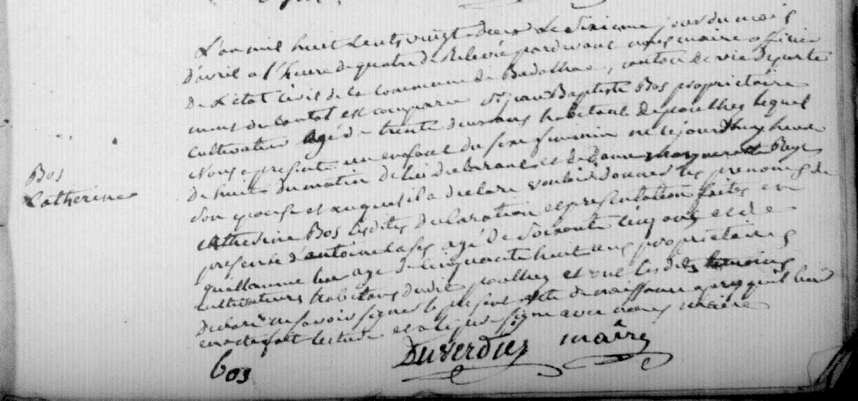 L'an mil huit cents vingt deux le sixieme jour du mois
d'avril a l'heure de quatre de Relevée pardevant nous maire officier
De L'état Civil de la Commune de Badalhac, canton de vic départe
ment du cantal est comparu sr jean Baptiste Bos propriétaire
cultivateur agé de trente deux ans habitant de poulhes lequel
Nous a présenté un enfant du sexe feminin né cejourdhuy heure
de huit du matin de lui déclarant et de Marguerite
Son epouse et auquel il a déclaré vouloir donner les prenoms de
Catherine Bos lesdites declaration et presentation faites en
presence d'antoine agé de soixante ans et de
guillaume agé de cinquante huit ans propriétaires
cultivateurs habitans dudit poulhes et ont lesdits temoins
Declaré ne savoir signer le present acte de naissance apres qu'il leur
en a été fait lecture et a le signé avec nous maire
Bos
Catherine
bos
Duverdier maire